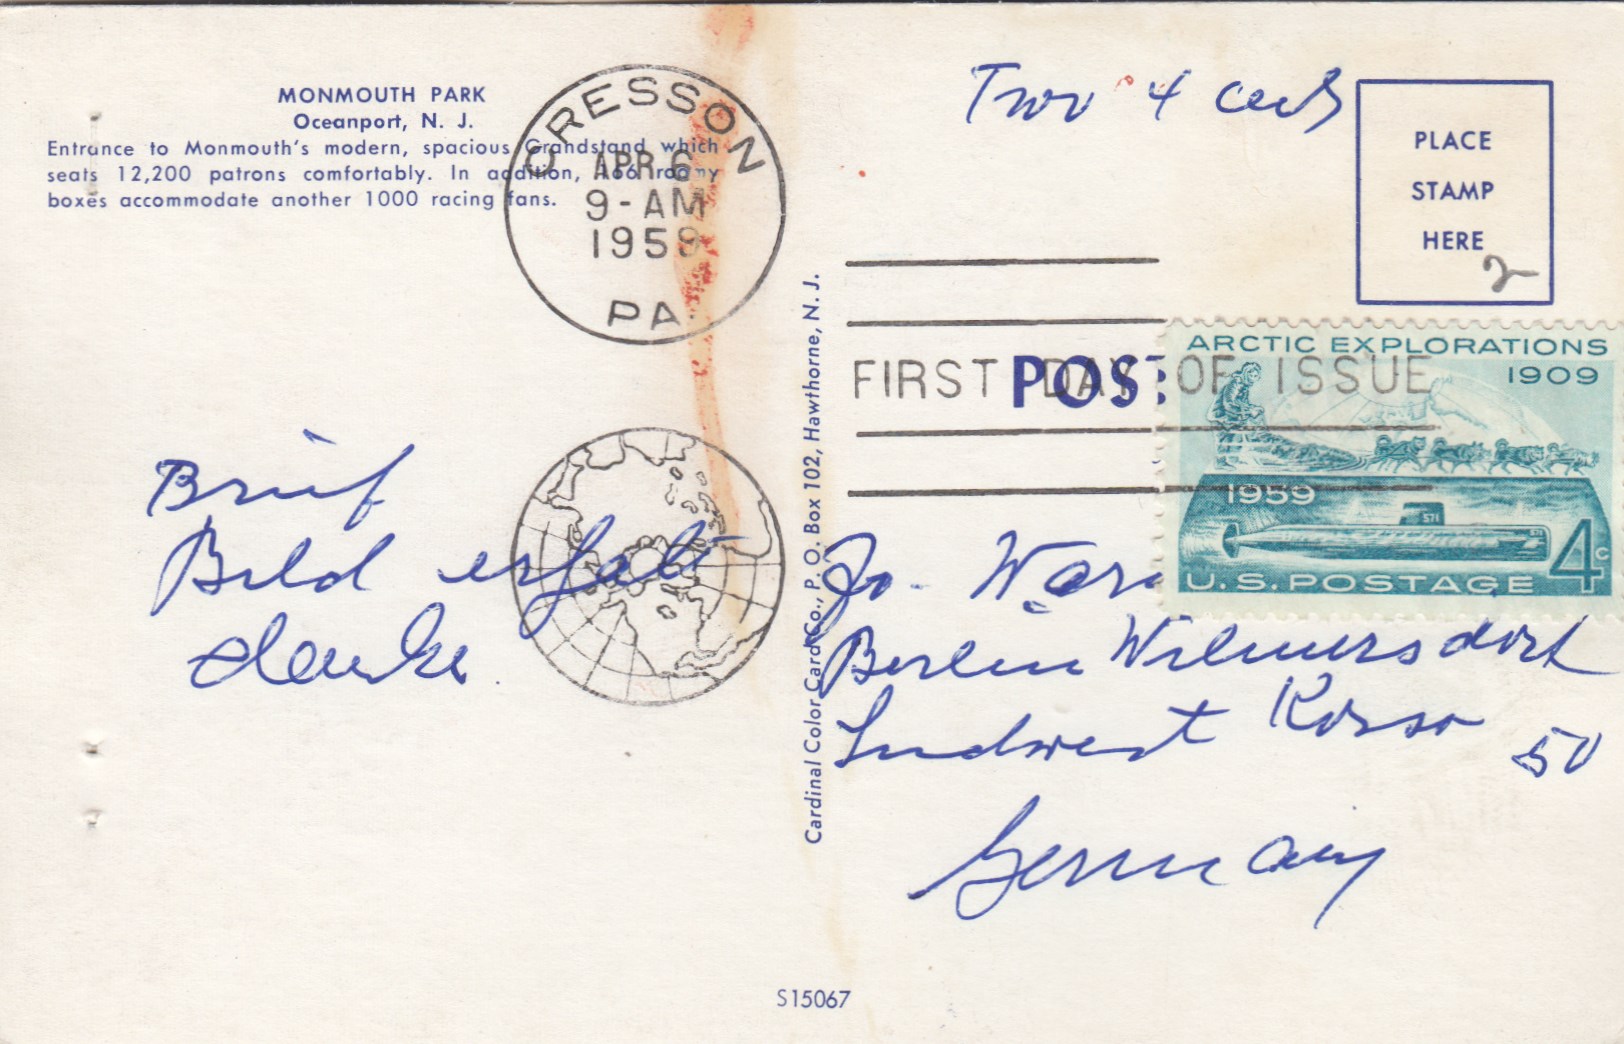 MONMOUTH PARK
Oceanport, N. J.
Entrance to Monmouth's modern, spacious Grandstand which
seats 12,200 patrons comfortably. In addition, 166 roomy
boxes accommodate another 1000 racing fans.
CRESSON
APR 6
9-AM
1959
PA.
Two 4 cects
PLACE
STAMP
HERE
2
FIRST DAY OF ISSUE
POST
ARCTIC EXPLORATIONS
1909
1959
571
4c
U.S. POSTAGE
Brief
Bild erhalt
danke.
Cardinal Color Card Co., P. O. Box 102, Hawthorne, N. J.
Berlin Wilmersdorf
Sudwest Korso 50
Germany
S15067